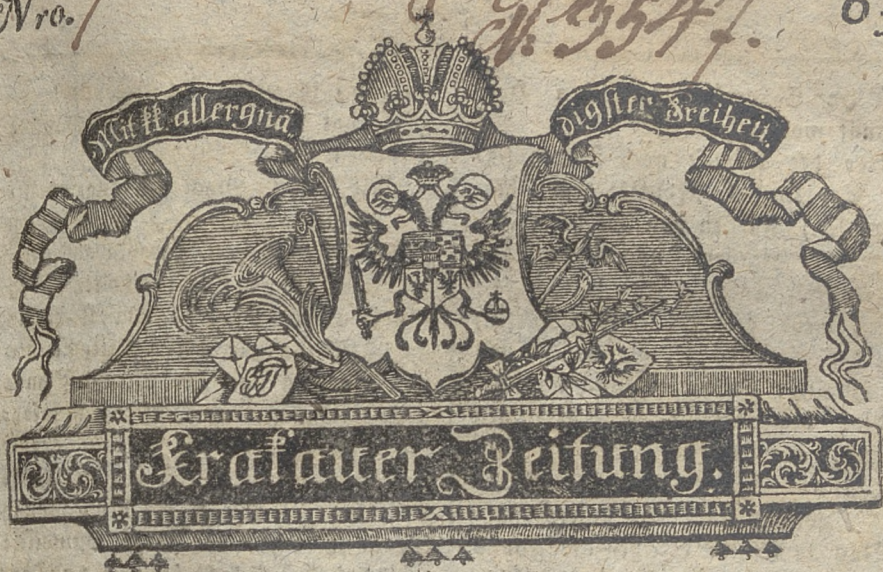 Nro.
N. 3547.
Mit kk allergnä
digster Freiheit.
Krakauer Zeitung.